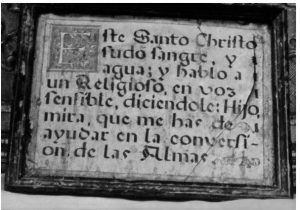 Este Santo Christo
sudo sangre, y
agua; y hablo a
un Religioso, en voz
sensible, diciendole: Hijo,
mira, que me has de
ayudar en la conversi-
on, de las Almas